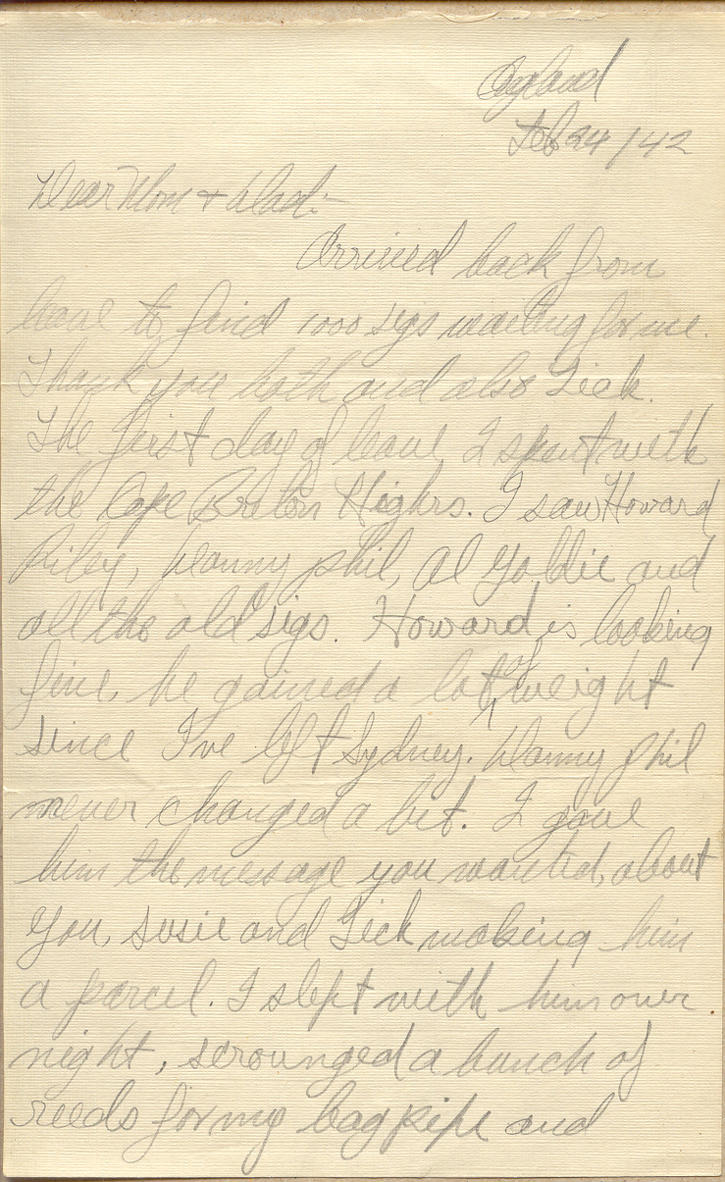 England
Feb 24/42
Dear Mom & Dad:-
Arrived back from
leave to find 1000 sigs waiting for me.
Thank you both and also Tick.
The first day of leave I spent with
the Cape Breton Highrs. I saw Howard
Riley, Danny phil, Al Goldie and
all the old sigs. Howard is looking
fine, he gained a lot of weight
since I've left Sydney. Danny phil
never changed a bit. I gave
him the message you wanted, about
you, Susie and Tick making him
a parcel. I slept with him over
night, scrounged a bunch of
reeds for my bagpipe and